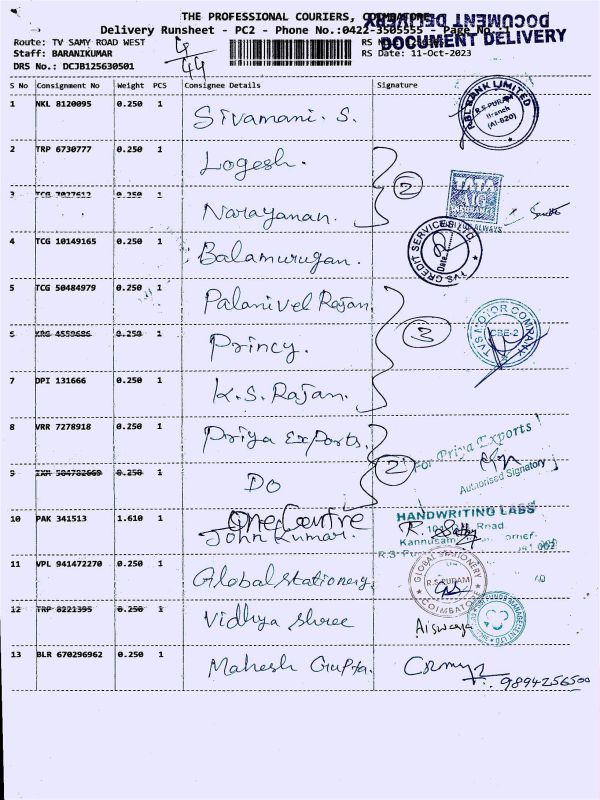 THE PROFESSIONAL COURIERS, COIMBATORE
Delivery Runsheet - PC2 - Phone No.:0422-3505555 - Page No.:1
DOCUMENT DELIVERY
DOCUMENT DELIVERY
Route: TV SAMY ROAD WEST
Staff: BARANIKUMAR
RS Date: 11-Oct-2023
DRS No.: DCJB125630501
S No Consignment No Weight PCS Consignee Details Signature
1 NKL 8120095 0.250 1 Sivamani. S.
RBL BANK LIMITED R.S. PURAM Branch
2 TRP 6730777 0.250 1 Logesh.
2
TATA AIG
ALWAYS
3 TCG 7027612 0.250 1 Narayanan.
4 TCG 10149165 0.250 1 Balamurugan.
TVS CREDIT SERVICES LTD. Date
5 TCG 50484979 0.250 1 Palanivel Rajan
6 KRG 4559686 0.250 1 Princy.
3
TVS MOTOR COMPANY CBE-2
7 DPI 131666 0.250 1 K.S. Rajan.
8 VRR 7278918 0.250 1 Priya Exports.
For Priya Exports
Authorised Signatory
2
9 IXM 504782669 0.250 1 DO
HANDWRITING LABS
10 PAK 341513 1.610 1 John Kumar.
One Centre
Road
R. Sathy
Kannusam
11 VPL 941472270 0.250 1 Global stationery,
GLOBAL STATIONERY R.S. PURAM COIMBATORE
12 TRP 8221395 0.250 1 Vidhya shree
Aiswarya
13 BLR 670296962 0.250 1 Mahesh Gupta.
9894256500